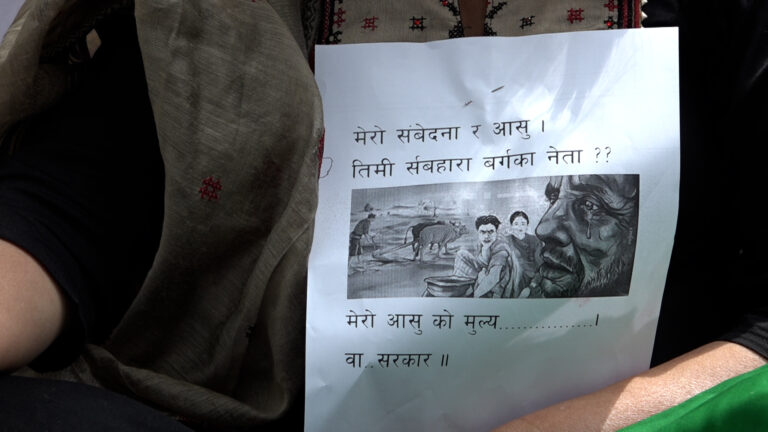 मेरो संबेदना र आसु ।
तिमी र्सबहारा बर्गका नेता ??
मेरो आसु को मुल्य................।
वा..सरकार ॥